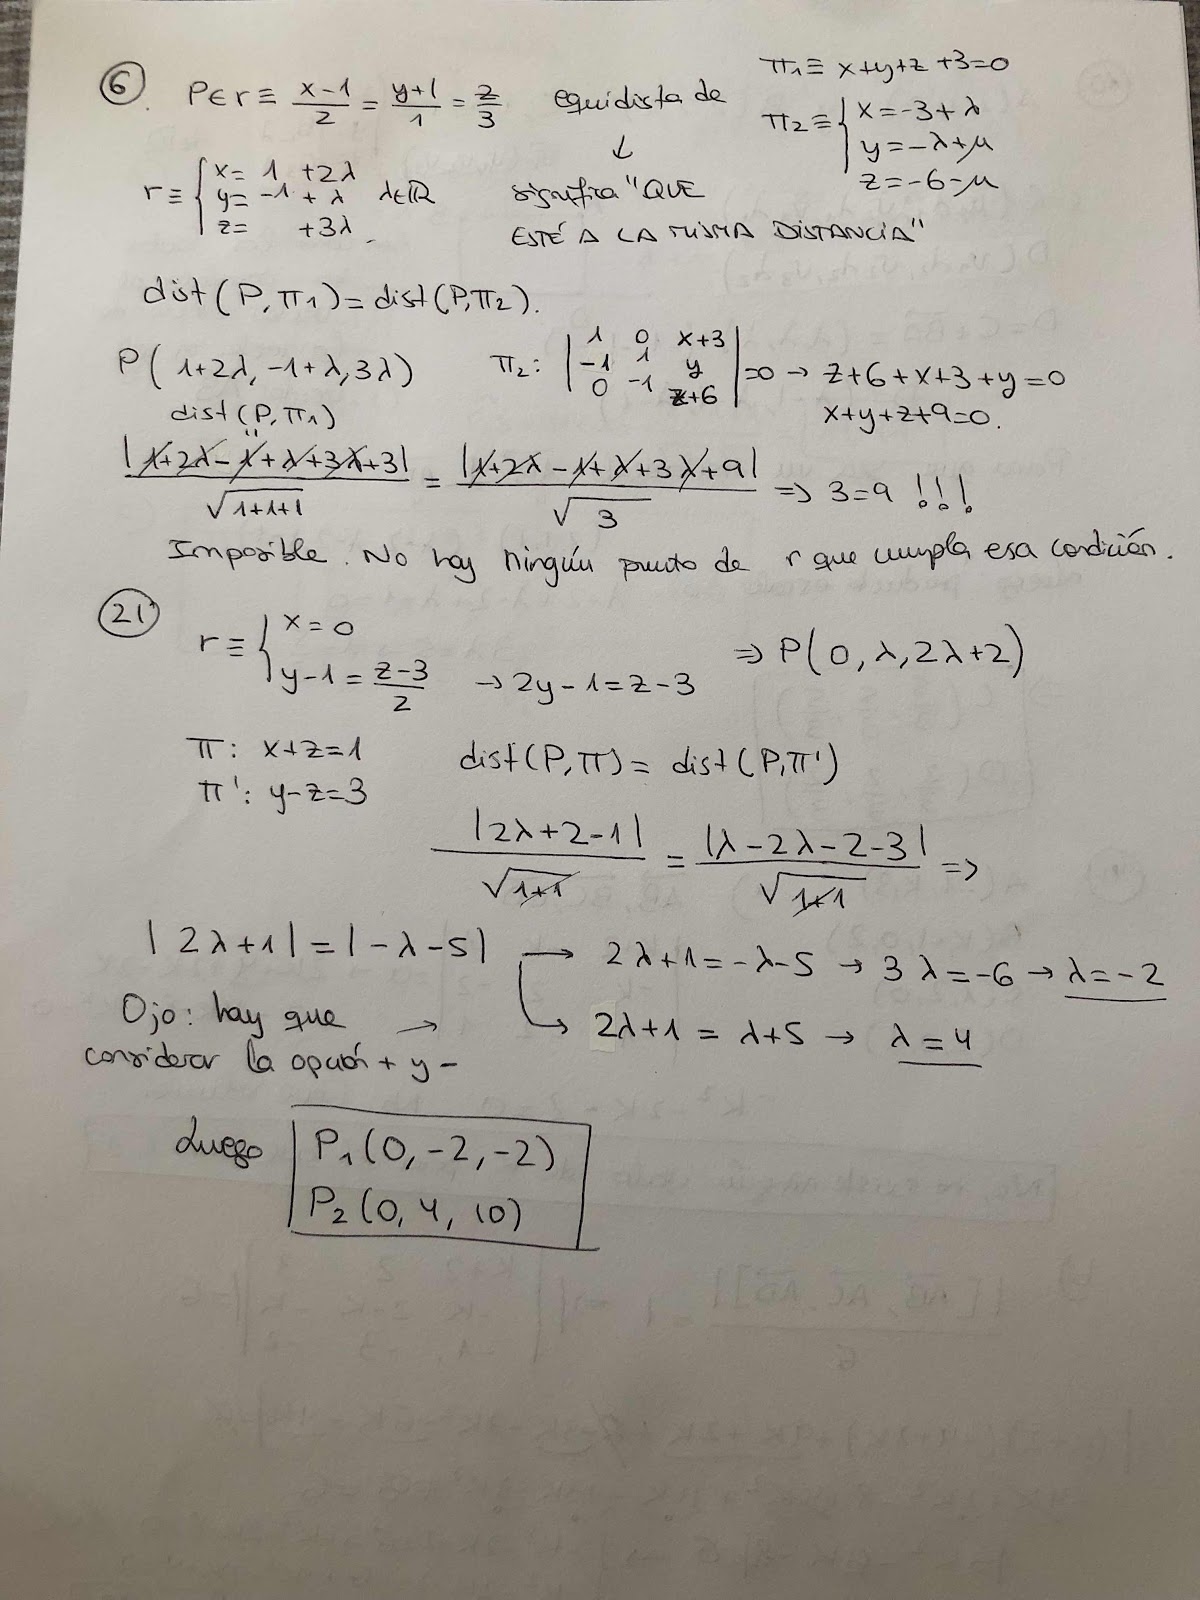 6. P∈r ≡ (x-1)/2 = (y+1)/1 = z/3 equidista de π1 ≡ x+y+z+3=0
π2 ≡ { x=-3+λ
y=-λ+μ
z=-6-μ
↓
r ≡ { x= 1 +2λ
y= -1 + λ λ∈ℝ
z= +3λ.
significa "QUE
ESTÉ A LA MISMA DISTANCIA"
dist(P,π1)=dist(P,π2).
P(1+2λ,-1+λ,3λ)
π2: | 1 0 x+3 |
| -1 1 y | =0 → z+6+x+3+y=0
| 0 -1 z+6 |
x+y+z+9=0.
dist(P,π1)
"
|1+2λ-1+λ+3λ+3| / √(1+1+1) = |1+2λ-1+λ+3λ+9| / √3 ⇒ 3=9 !!!
Imposible. No hay ningún punto de r que cumpla esa condición.
21
r ≡ { x=0
y-1 = (z-3)/2 → 2y-1=z-3 ⇒ P(0,λ,2λ+2)
π: x+z=1
π': y-z=3
dist(P,π)= dist(P,π')
|2λ+2-1| / √(1+1) = |λ-2λ-2-3| / √(1+1) ⇒
|2λ+1|=|-λ-5| → 2λ+1=-λ-5 → 3λ=-6 → λ=-2
Ojo: hay que → ↳ 2λ+1 = λ+5 → λ=4
considerar la opción + y -
Luego P1(0,-2,-2)
P2(0,4,10)